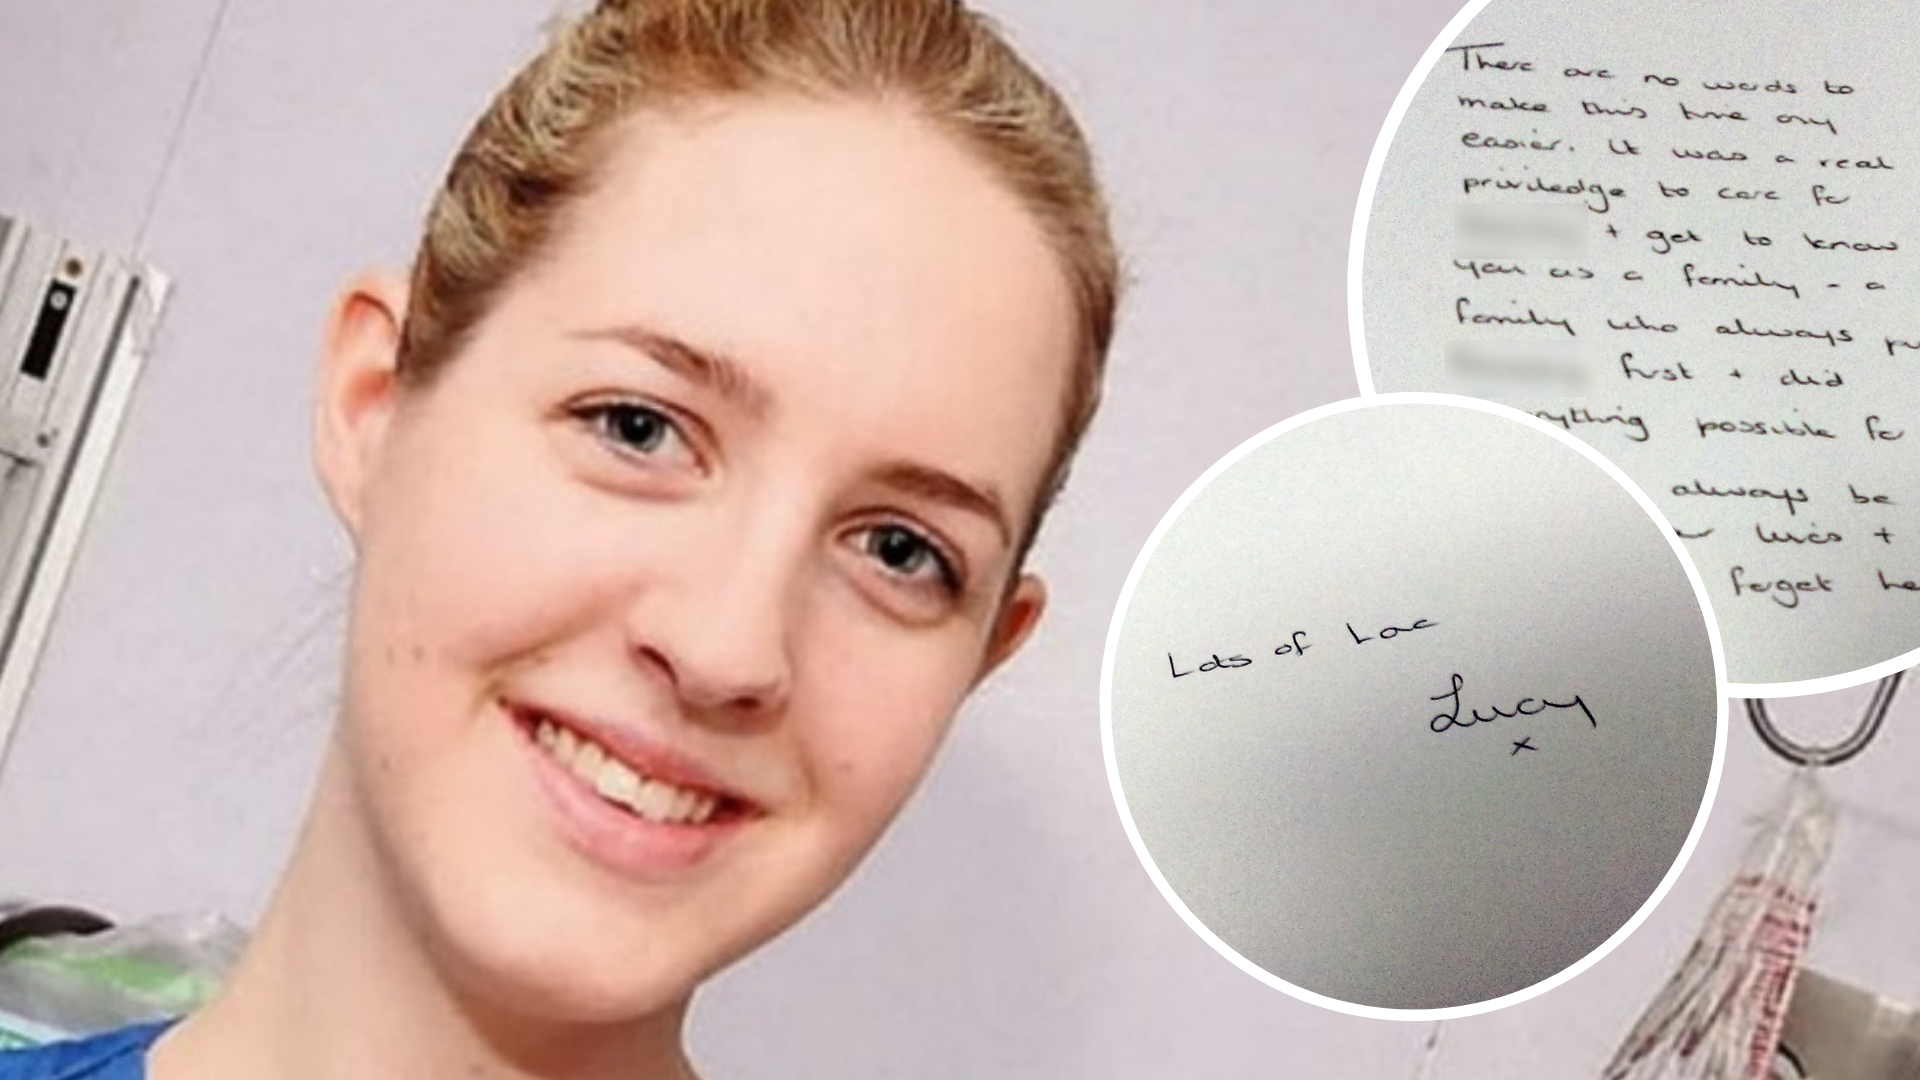 There are no words to
make this time any
easier. It was a real
priviledge to care for
+ get to know
you as a family - a
family who always
first + did
possible for
always be
lives +
forget
Lots of Love
Lucy
x